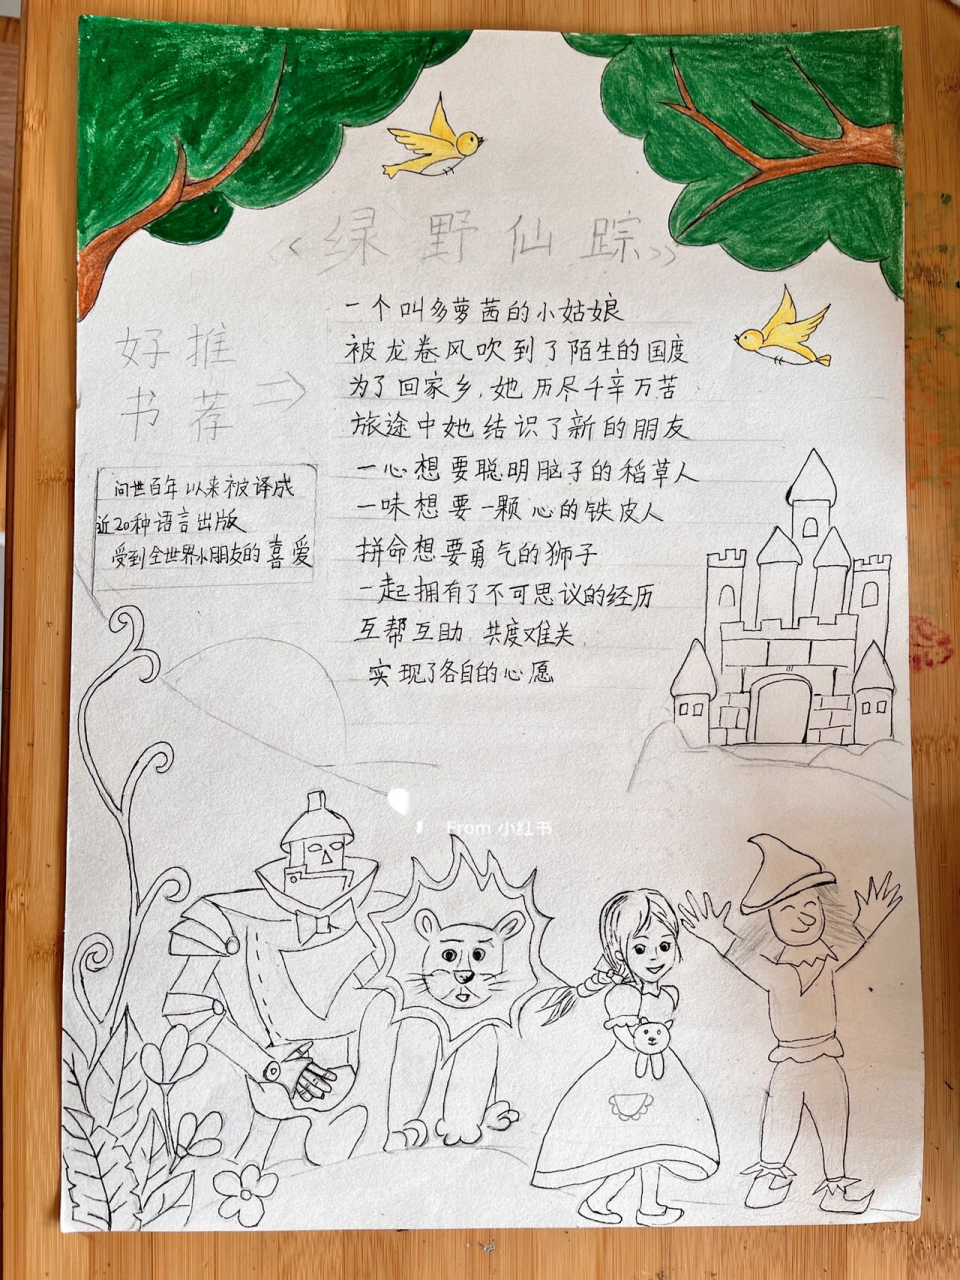 《绿野仙踪》
好书
推荐
一个叫多萝茜的小姑娘
被龙卷风吹到了陌生的国度
为了回家乡,她历尽千辛万苦
旅途中她结识了新的朋友
一心想要聪明脑子的稻草人
一味想要一颗心的铁皮人
拼命想要勇气的狮子
一起拥有了不可思议的经历
互帮互助 共度难关,
实现了各自的心愿
问世百年以来被译成
近20种语言出版
受到全世界小朋友的喜爱
From 小红书